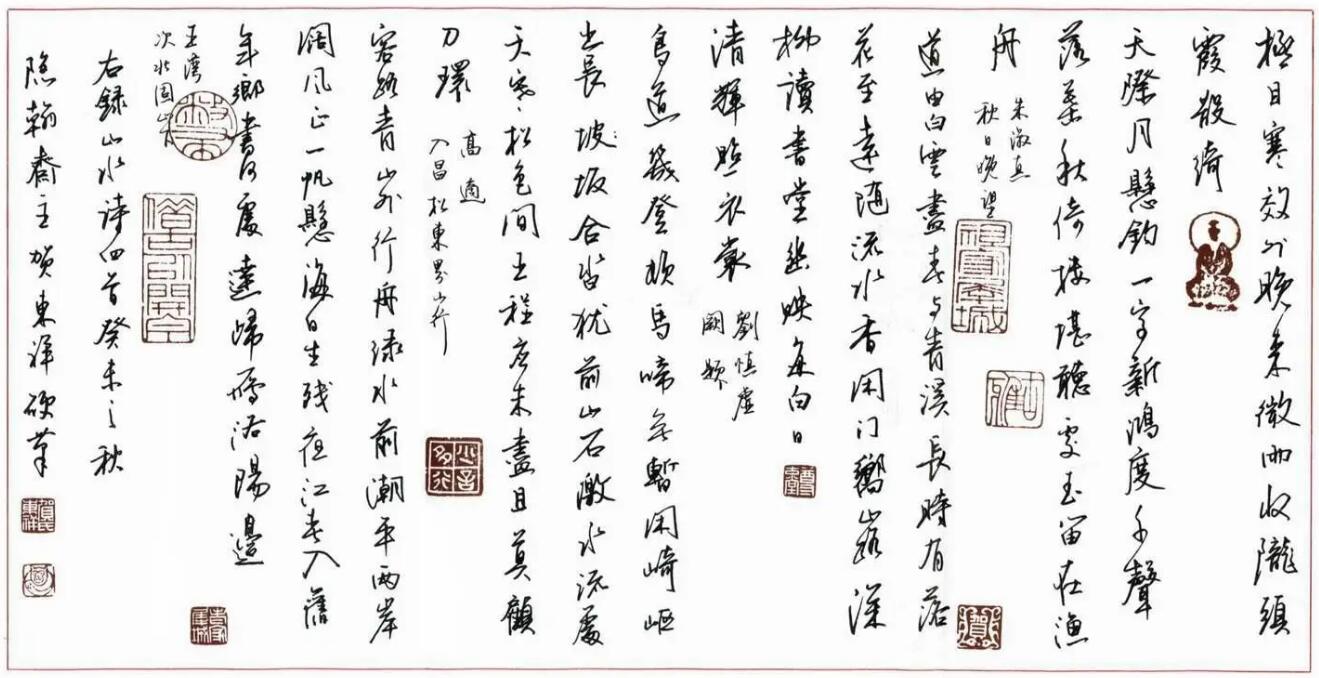 極目寒郊外晚来微雨收隴頭
霞散绮
天際月懸鈎一字新鴻度千聲
落葉秋倚樓堪聽處玉笛在漁
舟
朱淑真
秋日晚望
道由白雲盡春与青溪長時有落
花至遠随流水香闲门嚮山路深
柳讀書堂幽映每白日
清輝照衣裳
劉慎虛
闕題
鳥道幾登頓馬蹄無暫闲崎嶇
出長坡坂合沓犹前山石激水流處
天寒松色間王程應未盡且莫顧
刀環
高適
入昌松東界山行
客路青山外行舟绿水前潮平两岸
阔风正一帆懸海日生残夜江春入舊
年鄉書何處達歸雁洛陽邊
王湾
次北固山下
右録山水诗四首癸未之秋
隐翰齋主贺東祥硬筆